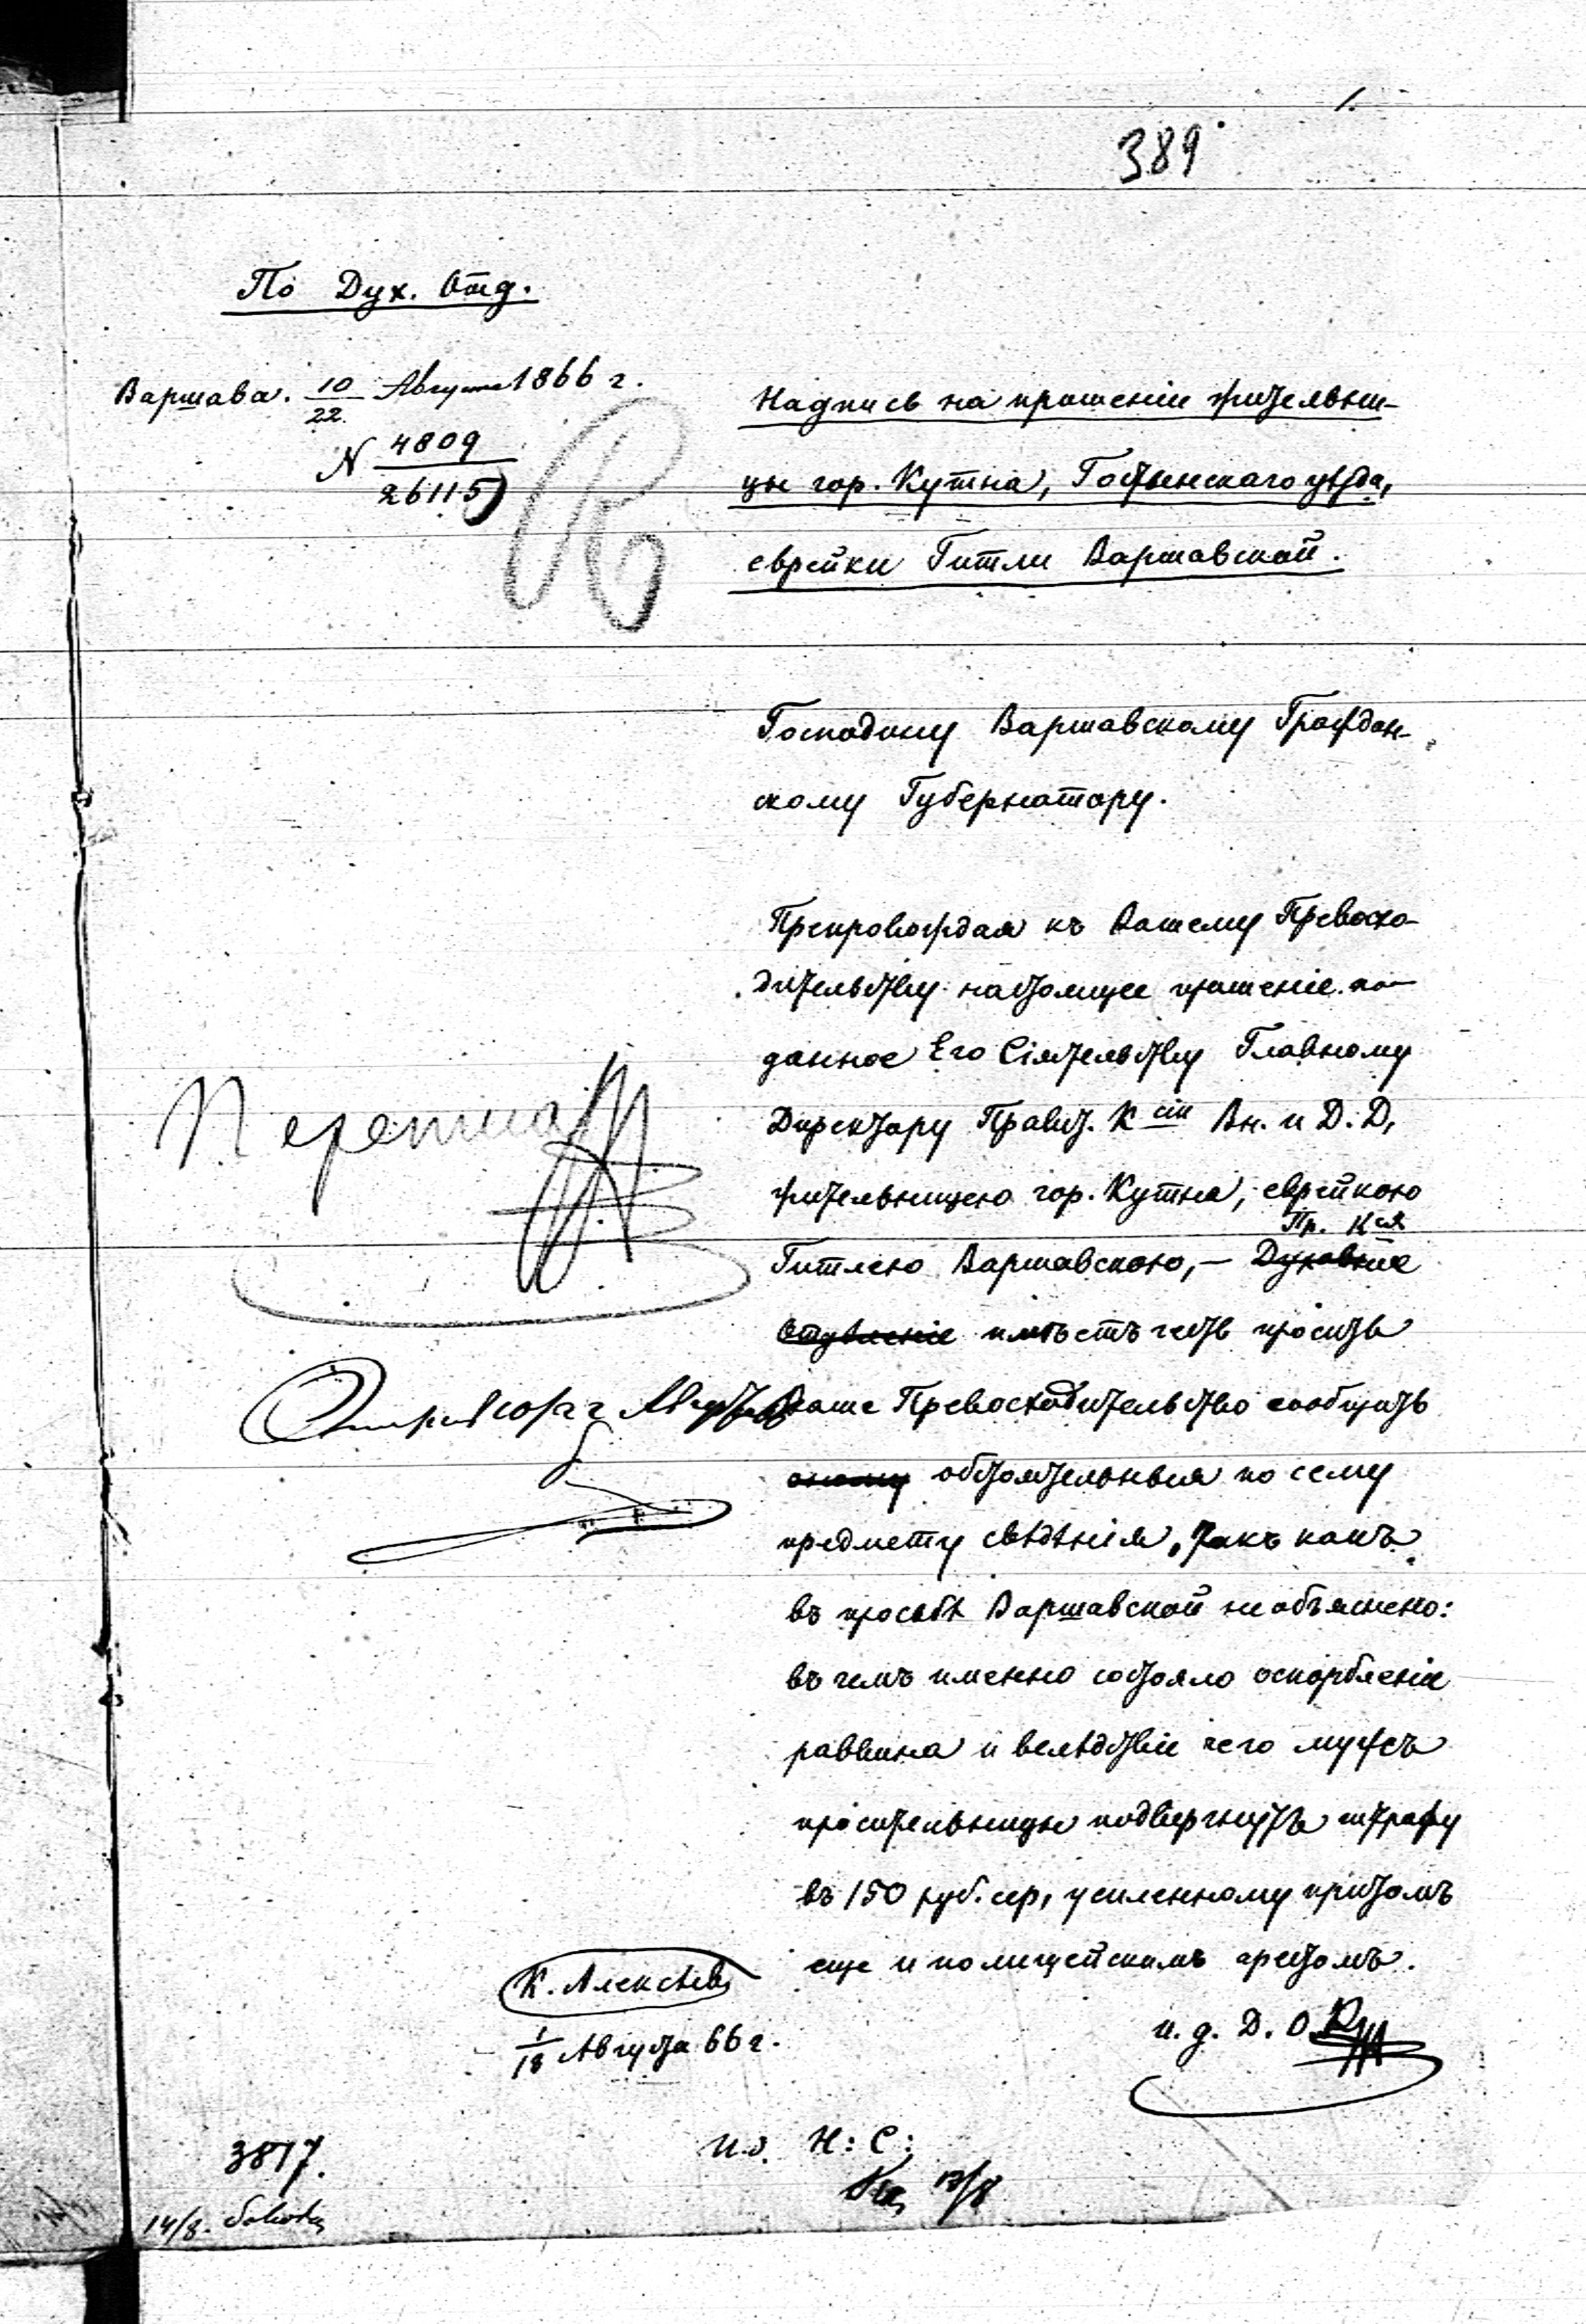 1.
389
По Дух. Отд.
Варшава. 10/22 Августа 1866 г.
N 4809/26115
Надпись на прошеніи жительни-
цы гор. Кутна, Гостынскаго уѣзда,
еврейки Гитли Варшавской.
Господину Варшавскому Граждан-
скому Губернатору.
Препровождая къ Вашему Превосхо-
дительству настоящее прошеніе по-
данное Его Сіятельству Главному
Директору Правит. Кcіи Вн. и Д. Д,
жительницею гор. Кутна, еврейкою
Пр. Кcія
Гитлею Варшавскою, — Духовное
Отдѣленіе имѣетъ честь просить
Ваше Превосходительство сообщить
оному обстоятельныя по сему
предмету свѣдѣнія, такъ какъ
въ просьбѣ Варшавской не объяснено:
въ чемъ именно состояло оскорбленіе
раввина и вслѣдствіе чего мужъ
просительницы подвергнутъ штрафу
въ 150 руб. сер, усиленному притомъ
еще и полицейскимъ арестомъ.
К. Алексѣев
1/13 Августа 66 г.
и. д. Д. О.
3817.
И.д. Н: С:
13/8
14/8.